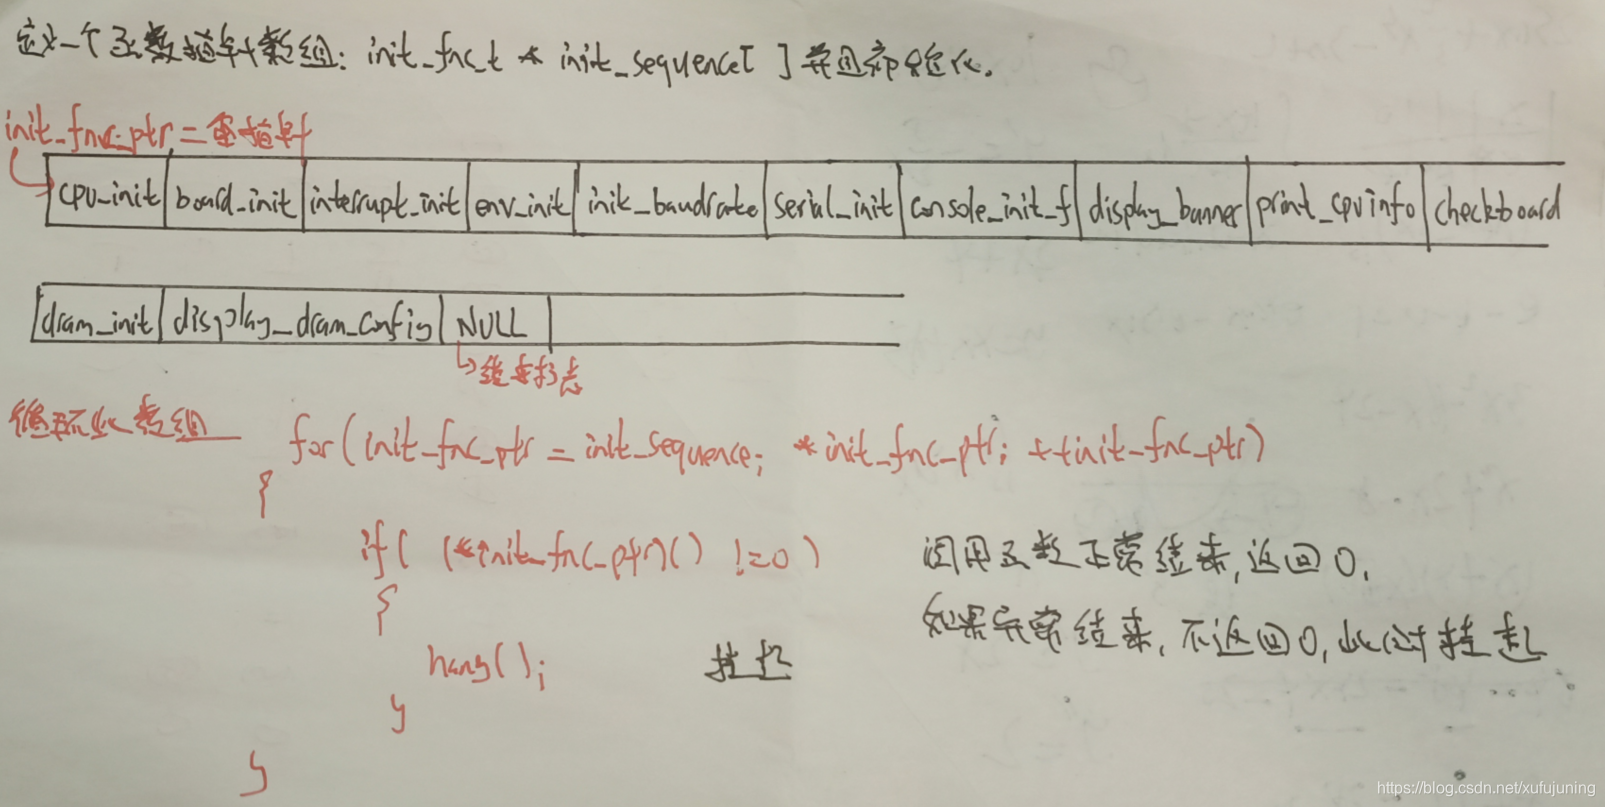 定义一个函数指针数组：init_fnc_t * init_sequence[ ] 并且初始化.
init_fnc_ptr = 指针
cpu_init board_init interrupt_init env_init init_baudrate serial_init console_init_f display_banner print_cpuinfo checkboard
dram_init display_dram_config NULL
结束标志
循环此数组
for( init_fnc_ptr = init_sequence; *init_fnc_ptr; ++init_fnc_ptr)
{
if( (*init_fnc_ptr)() !=0 ) 调用函数正常结束,返回0,
{ 如果异常结束,不返回0,此时挂起
hang(); 挂起
}
}
https://blog.csdn.net/xufujuning